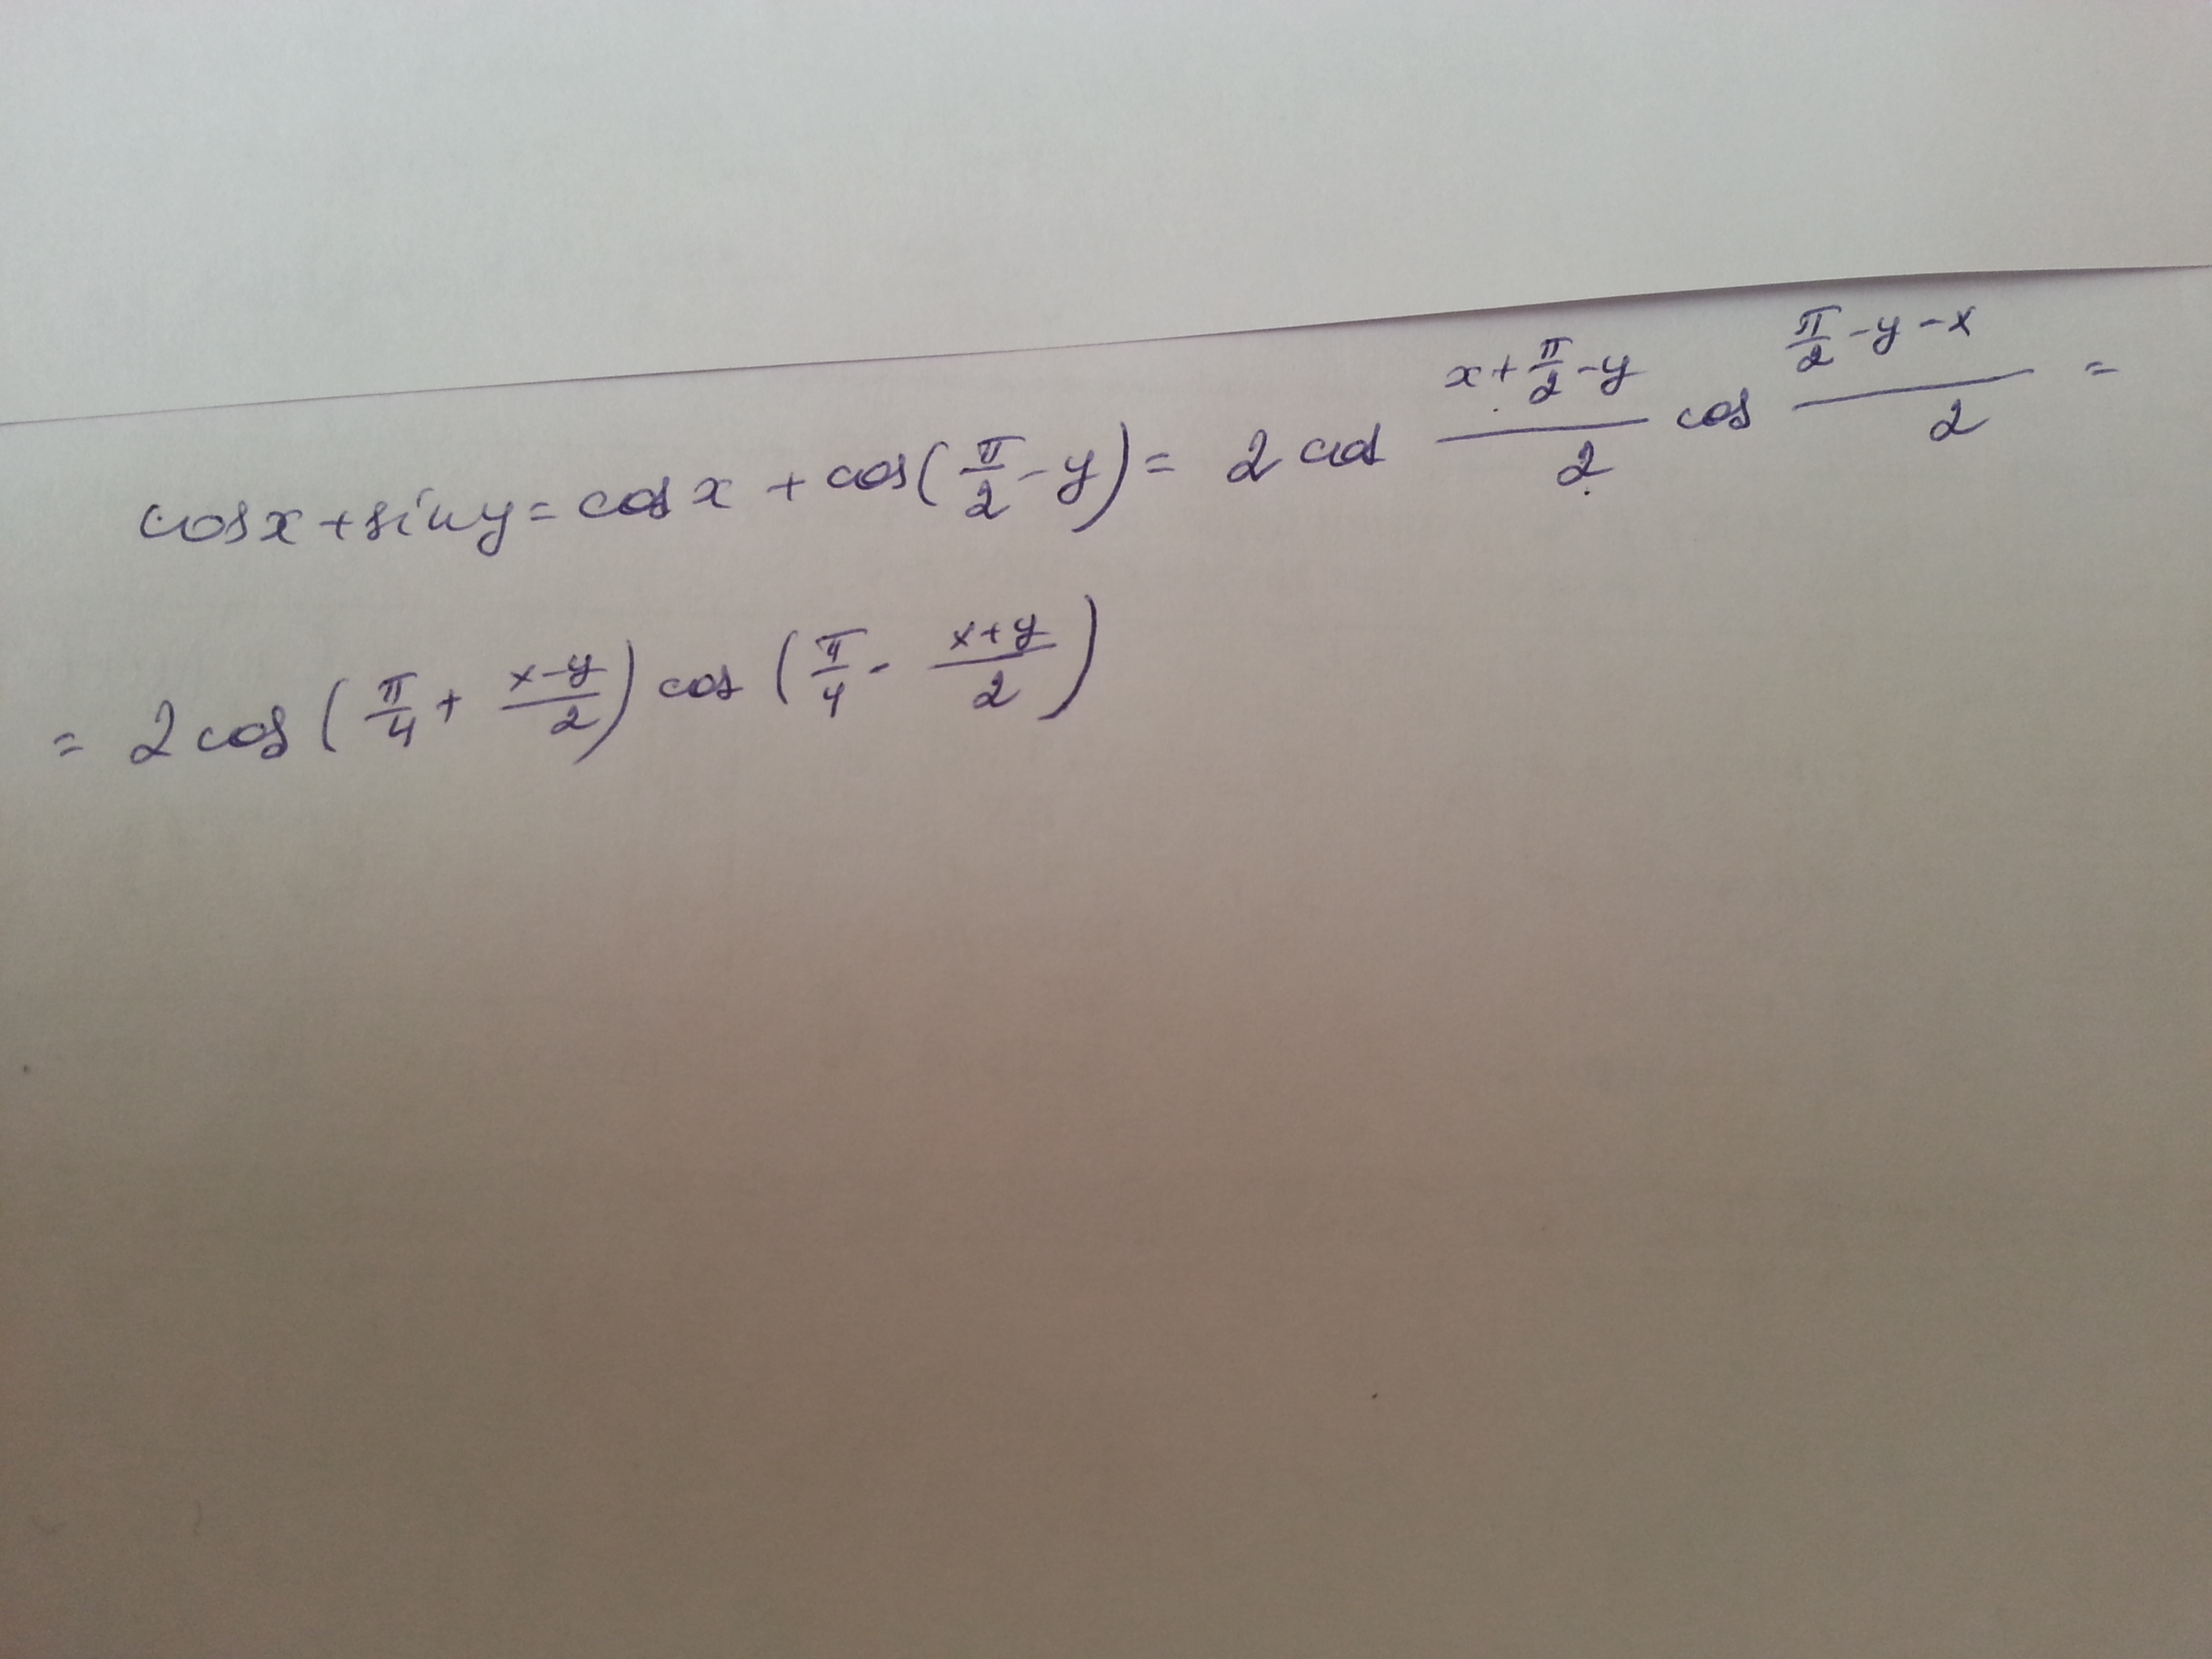 cos x + sin y = cos x + cos(π/2 - y) = 2 cos (x + π/2 - y)/2 cos (π/2 - y - x)/2 =
= 2 cos (π/4 + (x-y)/2) cos (π/4 - (x+y)/2)